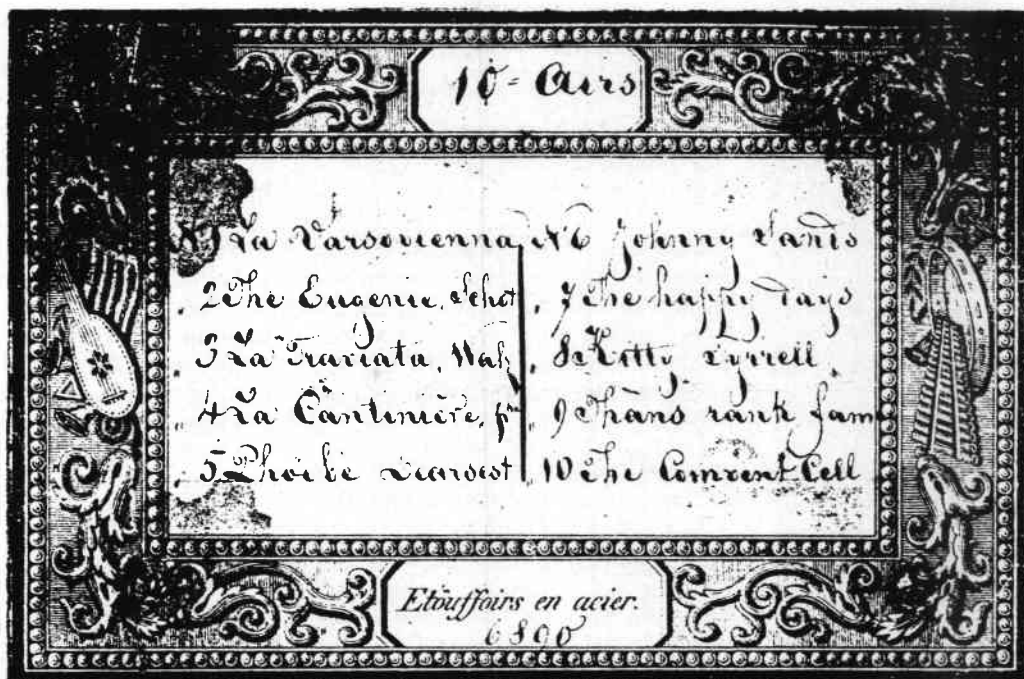 10 = Airs
La Varsovienna
2 The Eugenie, Schot
3 La Traviata, Walz
4 La Cantinière, pr
5 Phoebe Dearsest
N 6 Johnny Sands
7 The happy days
8 Kitty Tyrrell
9 Thans rank fam
10 The Comvent Cell
Etouffoirs en acier.
6890